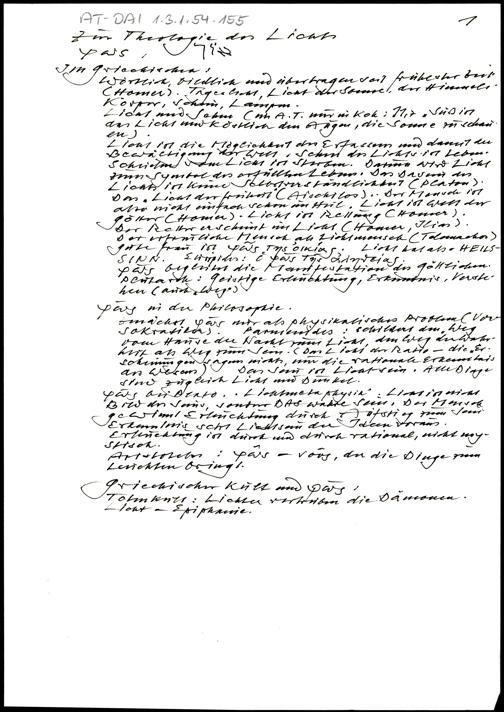 AT-DAI 1.3.1.54.155
1
Zur Theologie des Lichts
φῶς,
Im Griechischen:
Wörtlich, bildlich und übertragen seit frühester Zeit
(Homer). Tageslicht, Licht der Sonne, der Himmels-
körper, Lampen.
Licht und Sehen (im A.T. nur in Koh: 11,7 "Süß ist
das Licht und köstlich den Augen, die Sonne zu schau-
en).
Licht ist die Möglichkeit des Erfassens und damit der
Bewältigung der Welt. Sehen des Lichts ist Leben.
Scheiden vom Licht ist Sterben. Darum wird Licht
zum Symbol des erfüllten Lebens. Das Dasein des
Lichts ist keine Selbstverständlichkeit (Platon).
Das "Licht der Freiheit (Aischylos). Der Mensch ist
also nicht einfach schon im Heil. Licht ist Welt der
Götter (Homer). Licht ist Rettung (Homer).
Der Retter erscheint im Licht (Homer, Ilias).
Der erfreuliche Mensch als Lichtmensch (Telemachos)
Licht hat also HEILS-
SINN. Euripides:
φῶς begleitet die Manifestation des Göttlichen
Plutarch: Geistige Erleuchtung, Erkenntnis, Verste-
hen (auch "Weg")
φῶς in der Philosophie.
Zunächst φῶς nur als physikalisches Problem (Vor-
sokratiker). Parmenides: schildert den "Weg
vom Hause der Nacht zum Licht, den Weg der Wahr-
heit als Weg zum Sein. (Das Licht der Ratio – die Er-
scheinungen sagen nichts, nur die rationale Erkenntnis
des Wesens) Das Sein ist Lichtsein. Alle Dinge
sind zugleich Licht und Dunkel.
φῶς bei Plato. "Lichtmetaphysik": Licht ist nicht
Bild des Seins, sondern DAS wahre Sein. Der Mensch
gewinnt Erleuchtung durch Aufstieg zum Sein
Erkenntnis setzt Lichtsein der Ideen voraus.
Erleuchtung ist durch und durch rational, nicht my-
stisch.
Aristoteles: φῶς – νοῦς, der die Dinge zum
Leuchten bringt.
Griechischer Kult und φῶς:
Totenkult: Lichter vertreiben die Dämonen.
Licht – Epiphanie.